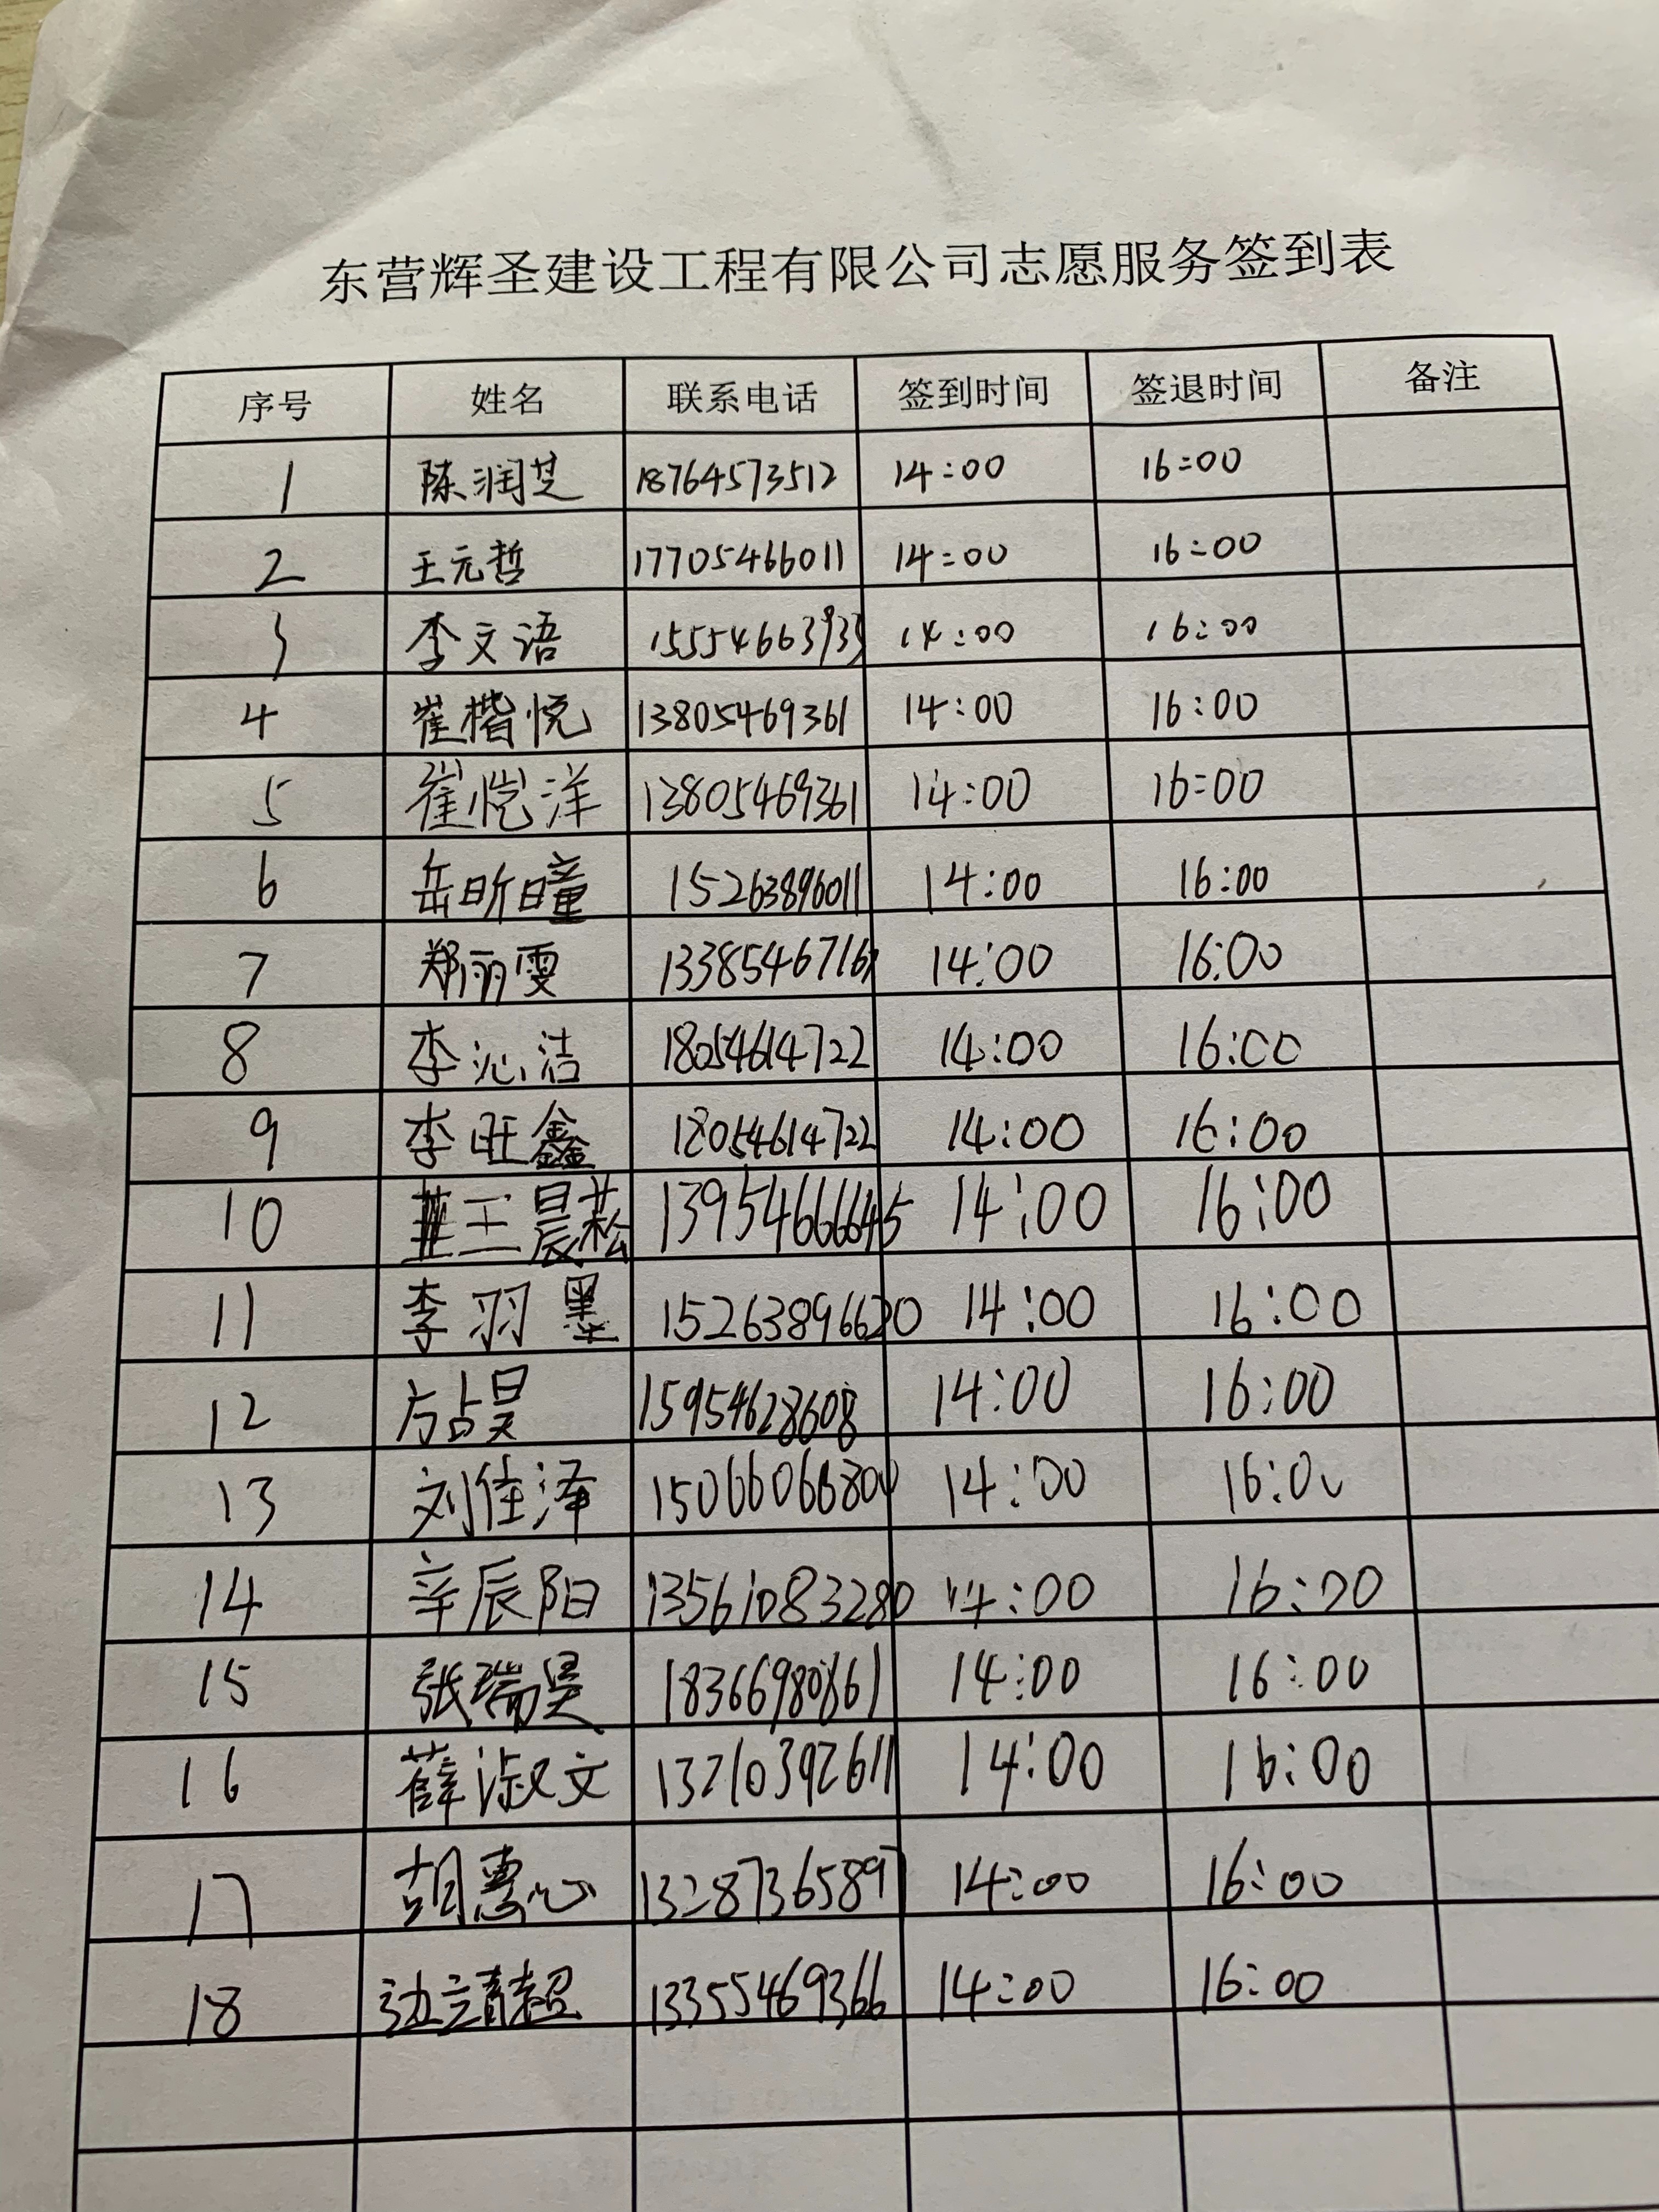 东营辉圣建设工程有限公司志愿服务签到表
序号 姓名 联系电话 签到时间 签退时间 备注
1 陈润芝 18764573512 14:00 16:00
2 王元哲 17705466011 14:00 16:00
3 李文语 14:00 16:00
4 崔楷悦 13805469361 14:00 16:00
5 崔恺洋 13805469361 14:00 16:00
6 岳昕瞳 15263896011 14:00 16:00
7 郑丽雯 14:00 16:00
8 李沁洁 18054614722 14:00 16:00
9 李旺鑫 18054614722 14:00 16:00
10 王晨菘 13954666645 14:00 16:00
11 李羽墨 15263896620 14:00 16:00
12 方占昊 15954628608 14:00 16:00
13 刘佳泽 15066066800 14:00 16:00
14 辛辰阳 13561083280 14:00 16:00
15 张瑞昊 18366980861 14:00 16:00
16 薛淑文 13210392611 14:00 16:00
17 胡惠心 13287365897 14:00 16:00
18 边靖超 13355469366 14:00 16:00